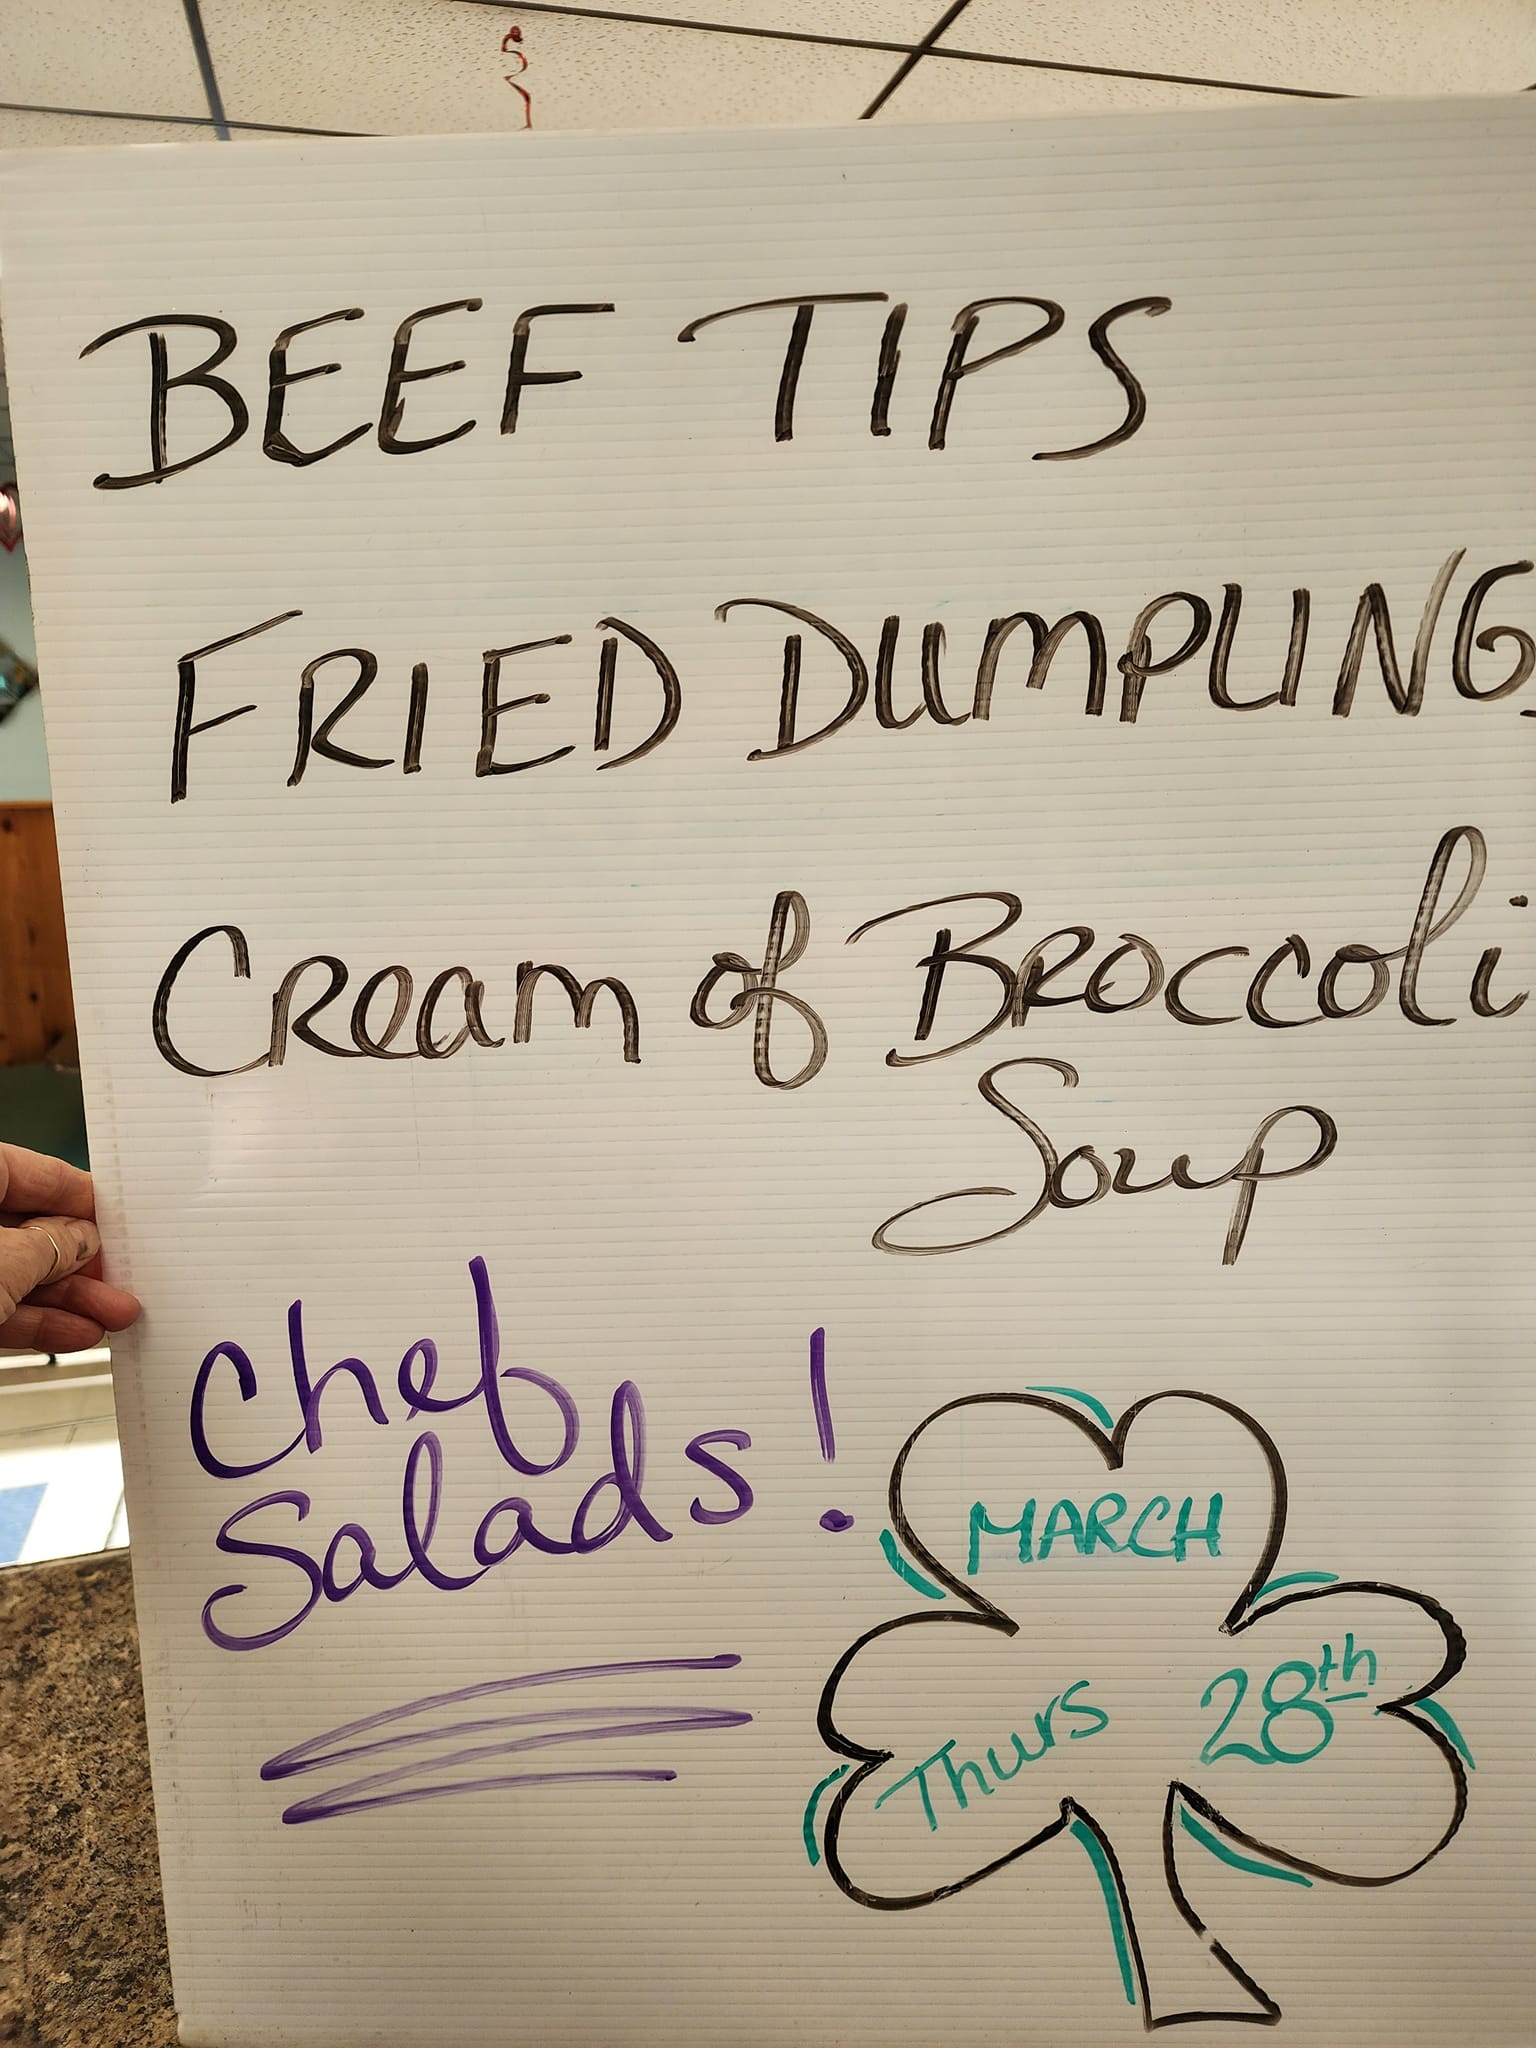 BEEF TIPS
FRIED DUMPLING
Cream of Broccoli
Soup
Chef
Salads!
MARCH
Thurs 28th